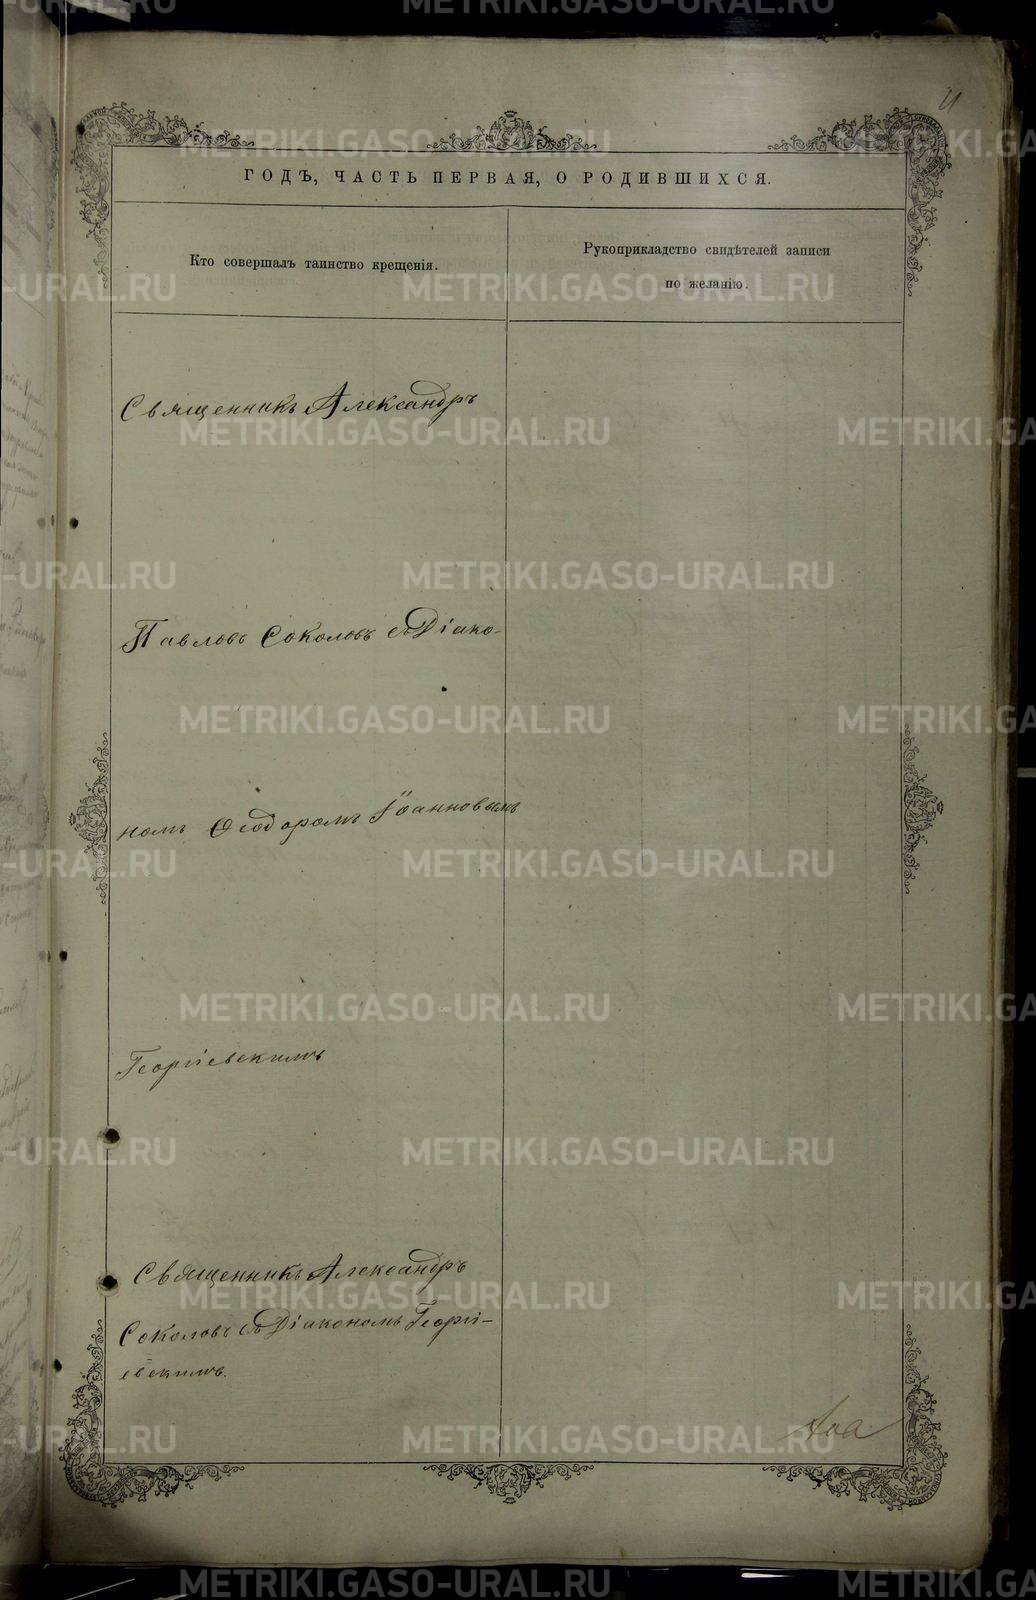 11
ГОДЪ, ЧАСТЬ ПЕРВАЯ, О РОДИВШИХСЯ.
Кто совершалъ таинство крещенія.
Рукоприкладство свидѣтелей записи
по желанію.
Священникъ Александръ
Павловъ Соколовъ съ Діако-
номъ Ѳеодоромъ Іоанновымъ
Георгіевскимъ
Священникъ Александръ
Соколовъ съ Діакономъ Георгі-
евскимъ.
METRIKI.GASO-URAL.RU